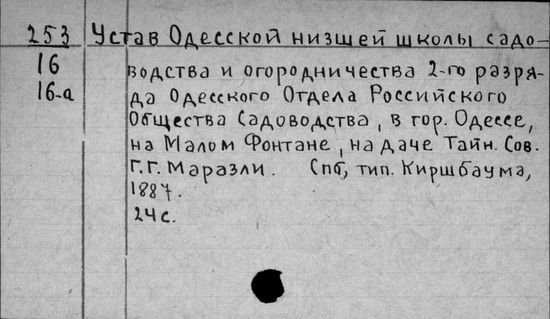 253 Устав Одесской низшей школы садо-
16 водства и огородничества 2-го разря-
16-а да Одесского Отдела Российского
Общества Садоводства, в гор. Одессе,
на Малом Фонтане, на даче Тайн. Сов.
Г. Г. Маразли. Спб, тип. Киршбаума,
1887.
24 с.